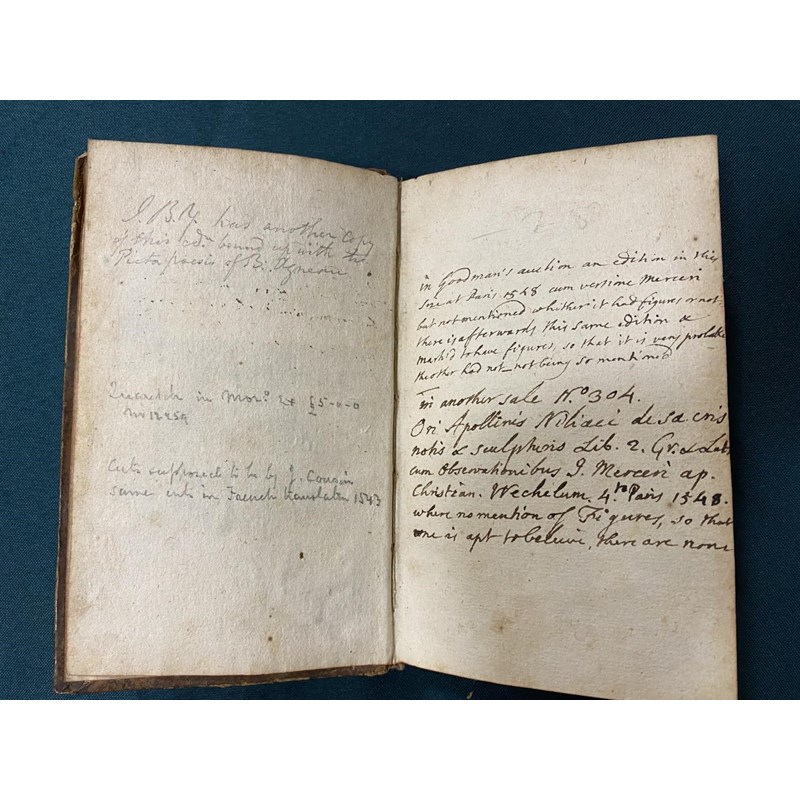 J. B. Y. has another Copy
of this edn. bound up with the
Picta poesis of B. Aneau
in Mor.o £5-0-0
No 12259
Cuts supposed to be by J. Cousin
same cuts in French translation 1543
in Goodman's auction an edition in this
size at Paris 1548 cum versione Merceri
but not mentioned whither it had figures or not
there is afterwards this same edition &
mark'd to have figures, so that it is very probable
the other had not, not being so mentioned
In another sale No. 304.
Ori Apollinis Niliaci de sacris
notis & sculpturis Lib. 2. Gr. & Lat.
cum Observationibus J. Merceri ap.
Christian. Wechelum, 4to Paris 1548.
where no mention of Figures, so that
one is apt to beleive, there are none